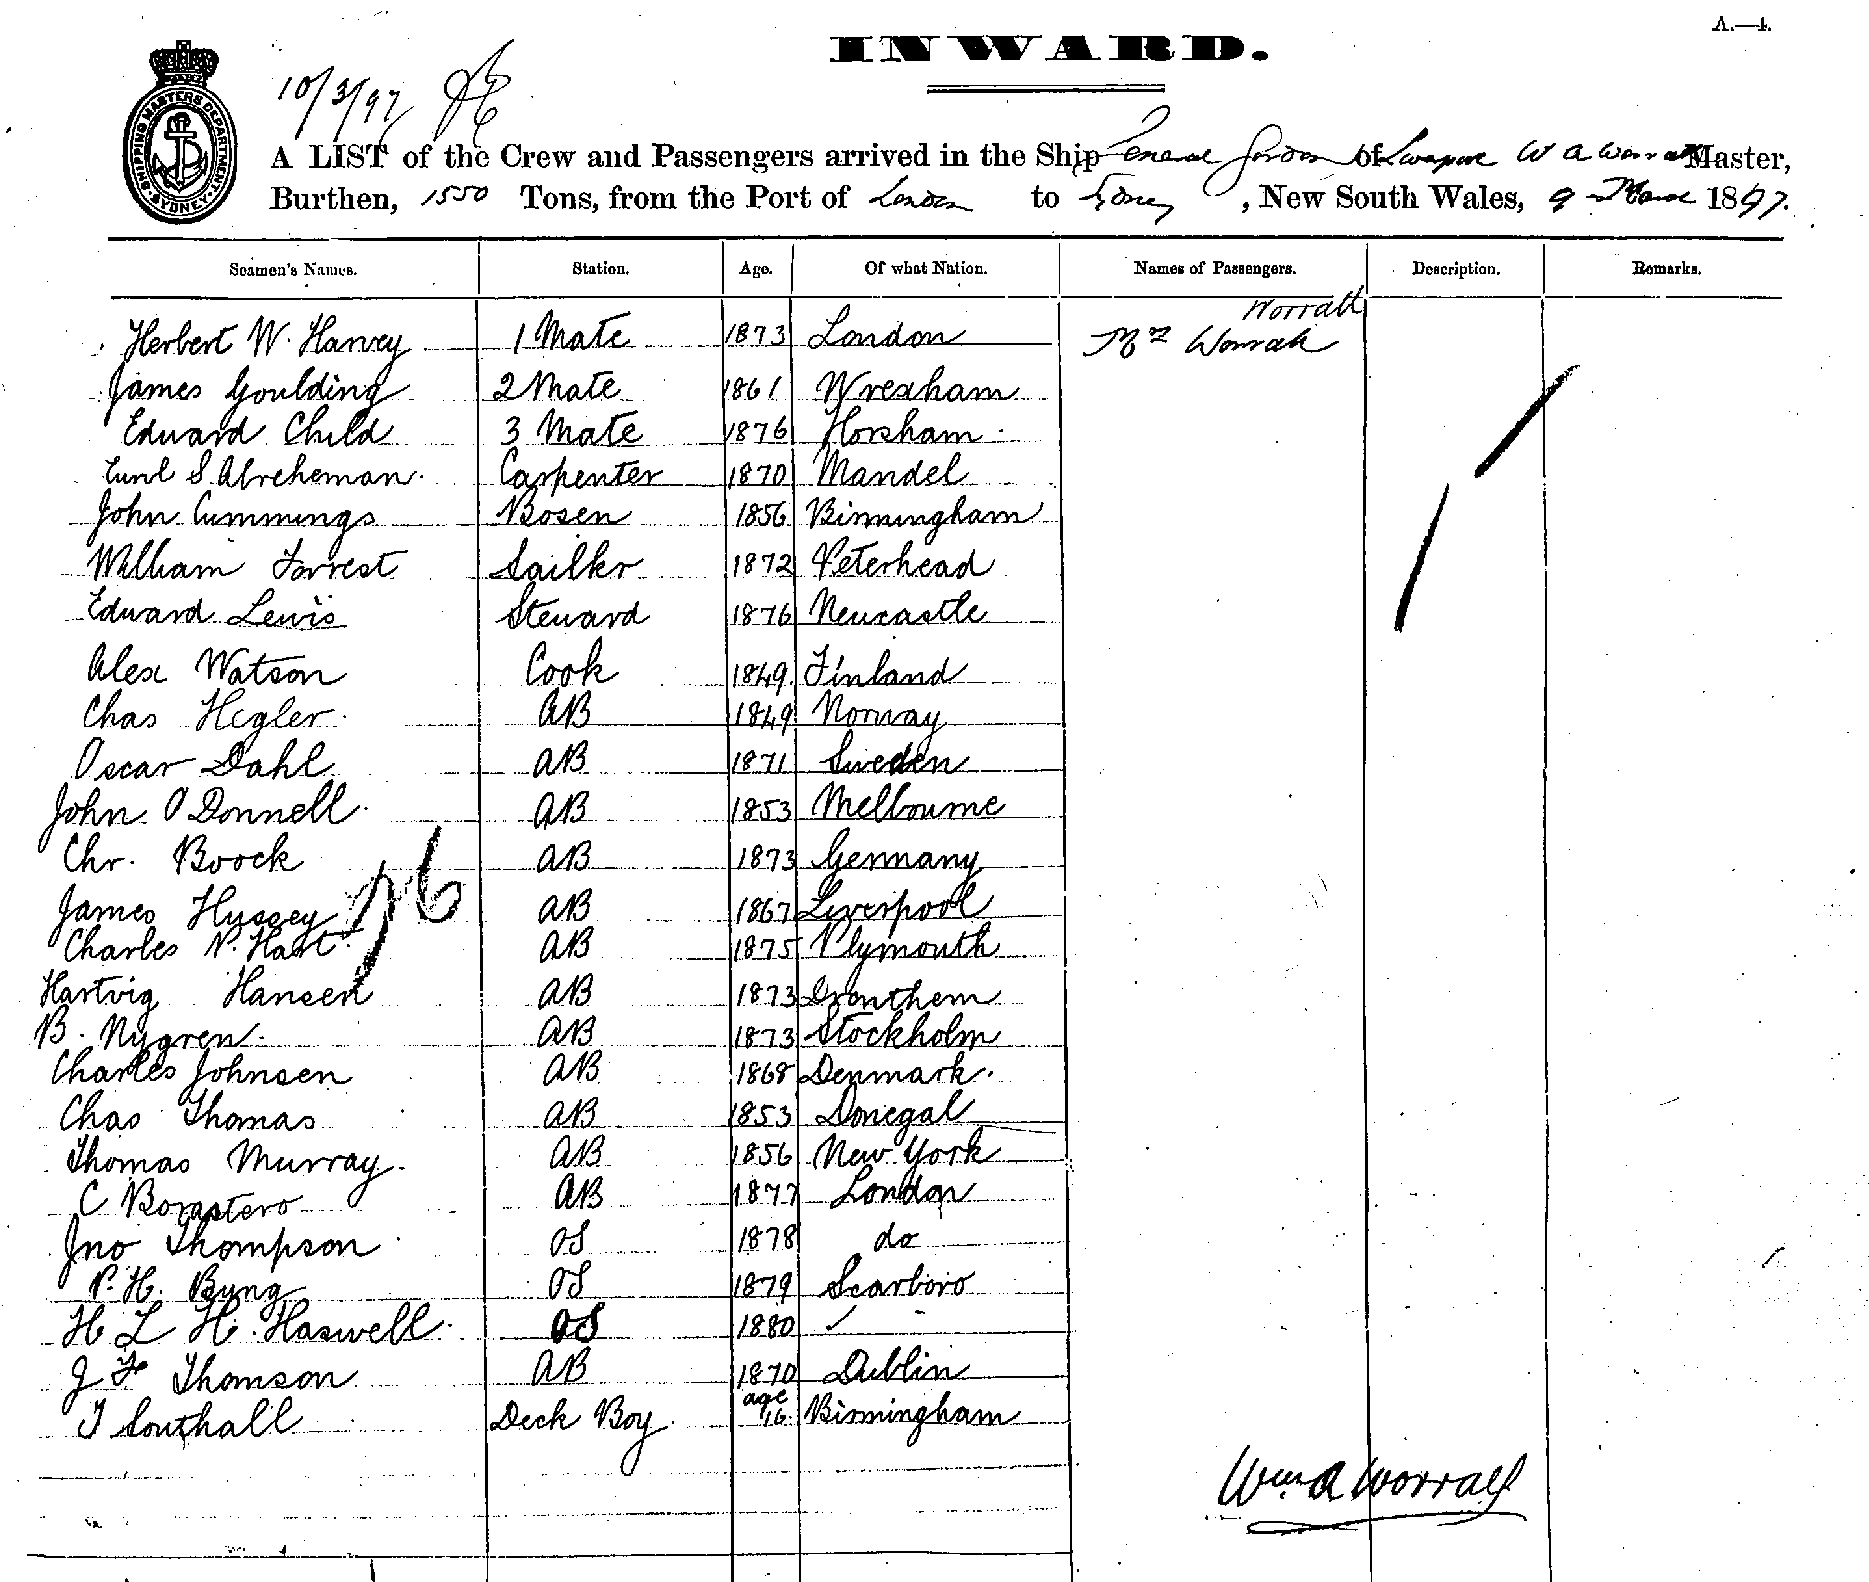 A.—4.
INWARD.
SHIPPING MASTERS DEPARTMENT SYDNEY
10/3/97
A LIST of the Crew and Passengers arrived in the Ship General Gordon of W A Worrall Master,
Burthen, 1550 Tons, from the Port of London to Sydney, New South Wales, 9 March 1897.
Seamen's Names. Station. Age. Of what Nation. Names of Passengers. Description. Remarks.
Worrall
Herbert W. Harvey 1 Mate 1873 London Mrs Worrall
James Goulding 2 Mate 1861 Wrexham
Edward Child 3 Mate 1876 Horsham
S. Abreheman Carpenter 1870 Mandel
John Cummings Bosen 1856 Birmingham
William Forrest Sailkr 1872 Peterhead
Edward Lewis Steward 1876 Newcastle
Alex Watson Cook 1849 Finland
Chas Hegler AB 1849 Norway
Oscar Dahl AB 1871 Sweden
John O'Donnell AB 1853 Melbourne
Chr. Boock AB 1873 Germany
James Hussey AB 1867 Liverpool
Charles P. Hart AB 1875 Plymouth
26
Hartvig Hansen AB 1873 Dronthem
B. Nygren AB 1873 Stockholm
Charles Johnsen AB 1868 Denmark
Chas Thomas AB 1853 Donegal
Thomas Murray AB 1856 New York
C Borastero AB 1877 London
Jno Thompson OS 1878 do
P. H. Byng OS 1879 Scarboro
H L H. Haswell OS 1880 ✓
J F Thomson AB 1870 Dublin
T Southall Deck Boy age 16 Birmingham
Wm A Worrall